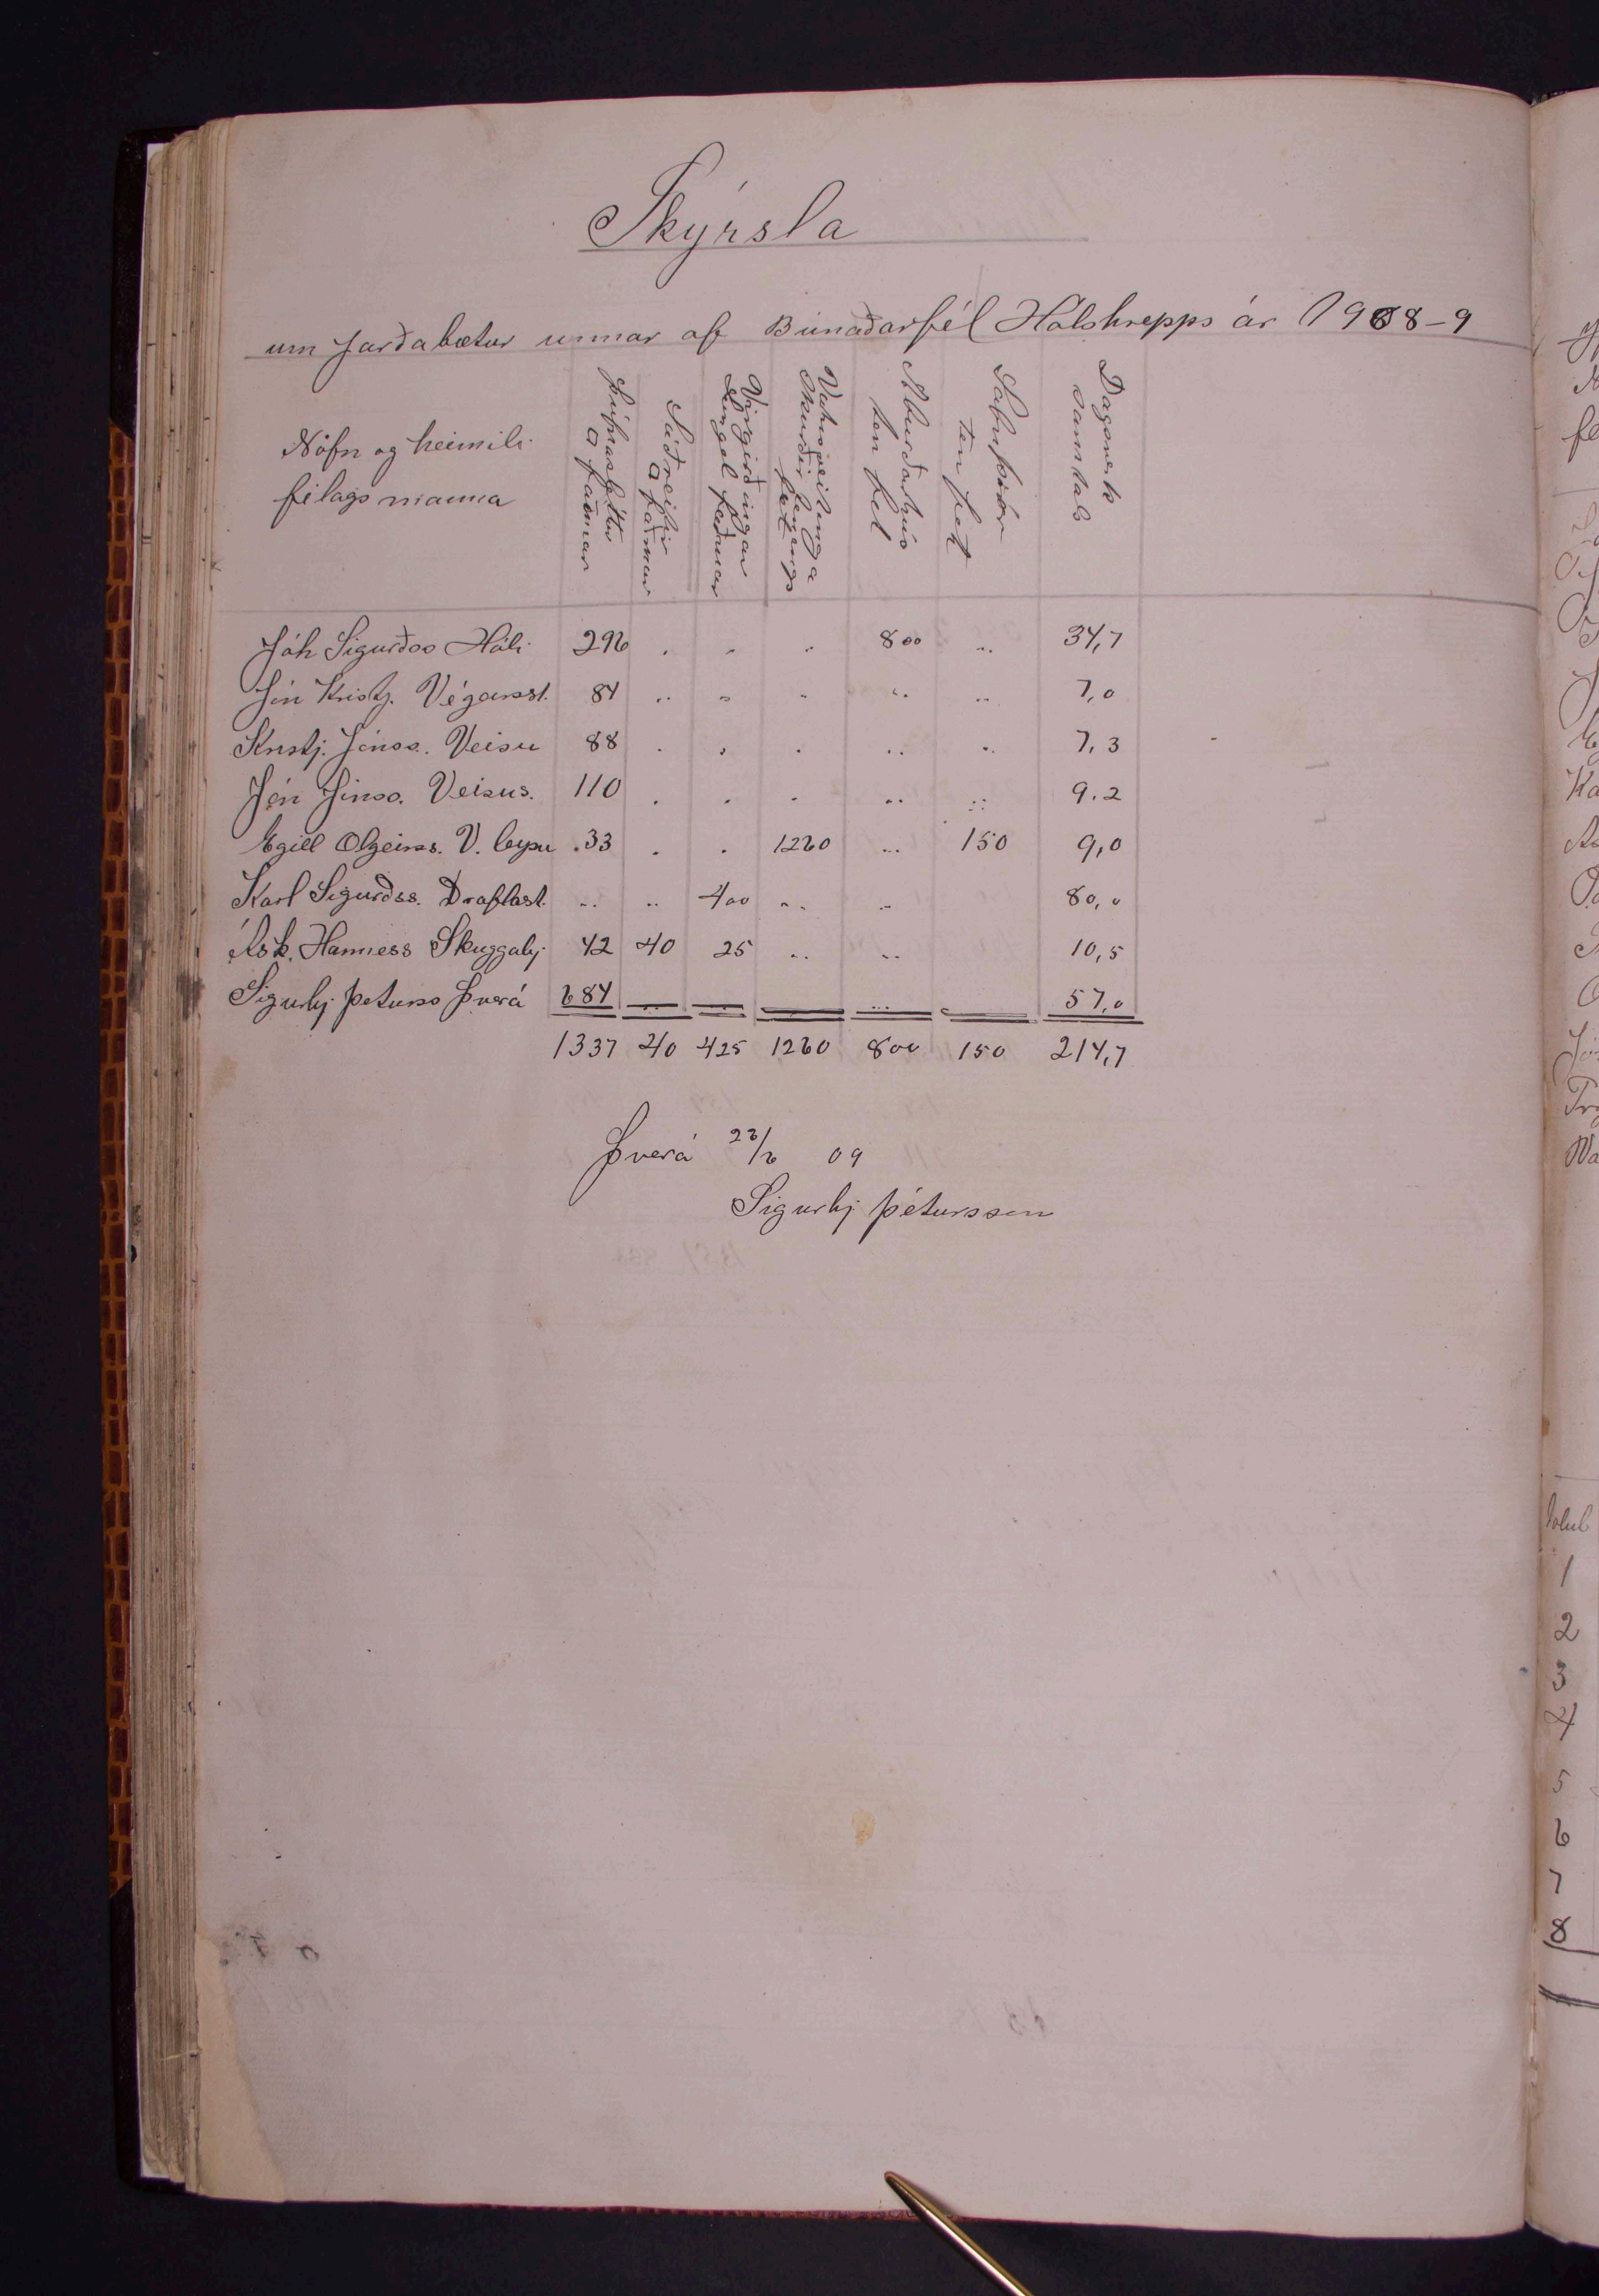 Skýrsla
um Jarðabætur unnar af Búnaðarfél Hálshrepps ár 1908-9
Nöfn og heimili
félagsmanna
Þúfnasléttur
□ faðmar
Sáðreitir
□ faðmar
Virgirðingar
Lengd faðmar
Vatnsveitinga
skurðir lengd
fet
Áburðarhús
ten fet
Safnþróar
ten fet
Dagsverk
samtals
Jóh Sigurðss Háli 296 . .. .. 800 .. 34,7
Jón Kristj. Végeirsst. 84 .. .. .. .. .. 7,0
Kristj. Jónss. Veisu 88 . . . .. .. 7,3
Jón Jónss. Veisus. 110 . . . .. .. 9.2
Egill Olgeirss. V. 33 . . 1260 ... 150 9,0
Karl Sigurðss. Draflast. .. .. 400 .. .. 80,0
Ásk. Hanness Skuggabj 42 40 25 .. .. 10,5
Sigurbj Peturss Þverá 684 ... 57,0
1337 40 425 1260 800 150 214,7
Þverá 26/6 09
Sigurbj Pétursson
1
2
3
4
5
6
7
8